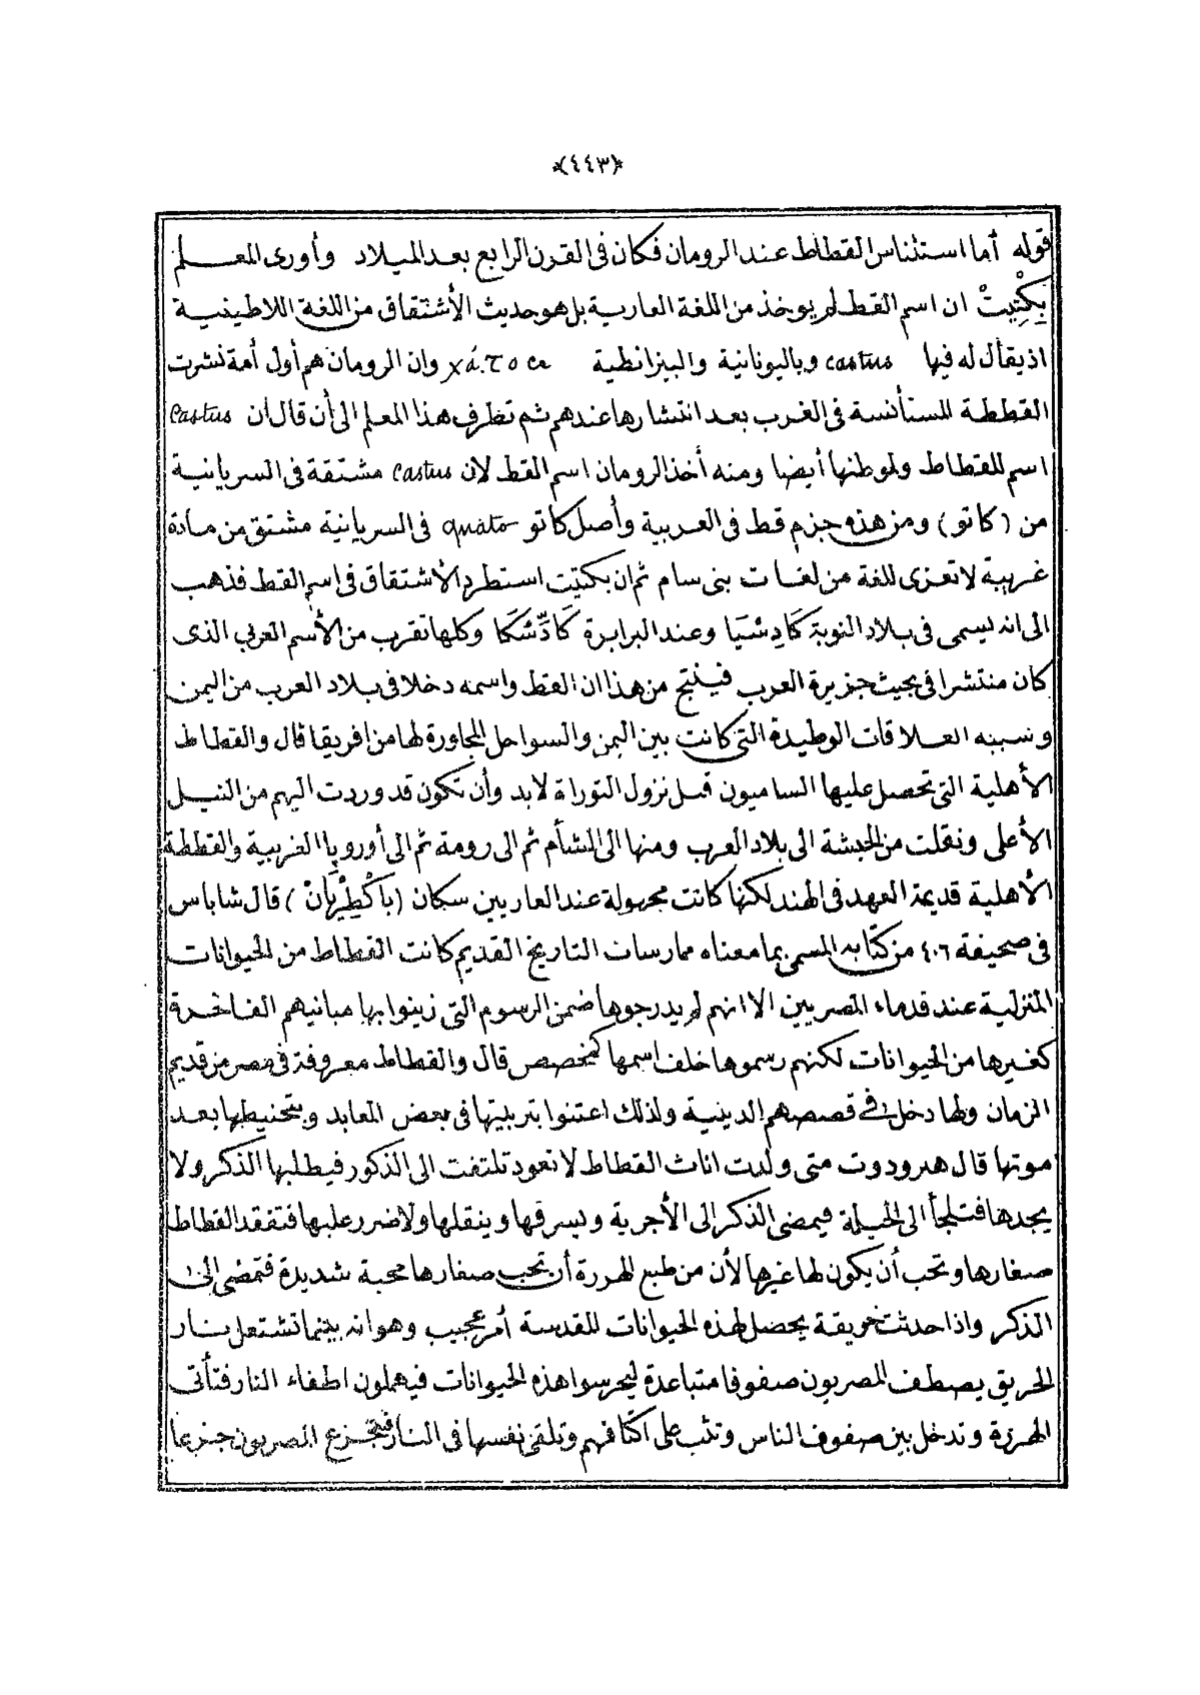 ﴿٤٤٣﴾
قوله أما استئناس القطاط عند الرومان فكان فى القرن الرابع بعد الميلاد وأورى المعلم
بِكْتِيتْ ان اسم القط لم يوخذ من اللغة العارية بل هو حديث الأشتقاق من اللغة اللاطينية
اذ يقال له فيها castus وباليونانية والبيزانطية χά.τος وان الرومان هم أول أمة نشرت
القططة المستأنسة فى الغرب بعد انتشارها عندهم ثم تطرف هذا المعلم الى أن قال ان castus
اسم للقطاط ولموطنها أيضا ومنه أخذ الرومان اسم القط لان castus مشتقة فى السريانية
من (كاتو) ومن هذه جزم قط فى العربية وأصل كاتو quato فى السريانية مشتق من مادة
غريبة لا تعزى للغة من لغات بنى سام ثم ان بكتيت استطرد الأشتقاق فى اسم القط فذهب
الى انه يسمى فى بلاد النوبة كَادِسْيَا وعند البرابرة كَادِّسْكَا وكلها تقرب من الأسم العربي الذى
كان منتشرا فى بحيث جزيرة العرب فينتج من هذا ان القط واسمه دخلا فى بلاد العرب من اليمن
وسببه العلاقات الوطيدة التى كانت بين اليمن والسواحل المجاورة لها من افريقا قال والقطاط
الأهلية التى تحصل عليها الساميون قبل نزول التوراة لابد وأن تكون قد وردت اليهم من النيل
الأعلى ونقلت من الحبشة الى بلاد العرب ومنها الى الشأم ثم الى رومة ثم الى أوروپا الغربية والقططة
الأهلية قديمة العهد فى الهند لكنها كانت مجهولة عند العاريين سكان (بَاكْطِرْيَانْ) قال شاباس
فى صحيفة ٤٠٦ من كتابه المسمى بما معناه ممارسات التاريخ القديم كانت القطاط من الحيوانات
المنزلية عند قدماء المصريين الا انهم لم يدرجوها ضمن الرسوم التى زينوا بها مبانيهم الفاخرة
كغيرها من الحيوانات لكنهم رسموها خلف اسمها كمخصص قال والقطاط معروفة فى مصر من قديم
الزمان ولها دخل فى قصصهم الدينية ولذلك اعتنوا بتربيتها فى بعض المعابد وبتحنيطها بعد
موتها قال هيرودوت متى ولدت اناث القطاط لا تعود تلتفت الى الذكور فيطلبها الذكر ولا
يجدها فتلجأ الى الحيلة فيمضى الذكر الى الأجرية ويسرقها وينقلها ولا ضرر عليها فتفقد القطاط
صغارها وتحب أن يكون لها غيرها لأن من طبع الهررة أن تحب صغارها محبة شديدة فتمضى الى
الذكر واذا حدثت خريقة يحصل لهذه الحيوانات المقدسة أمر عجيب وهو انه بينما تشتعل نار
الحريق يصطف المصريون صفوفا متباعدة ليحرسوا هذه الحيوانات فيهملون اطفاء النار فتأتى
الهررة وتدخل بين صفوف الناس وتثب على اكتافهم وتلقى نفسها فى النار فيجزع المصريون جزعا